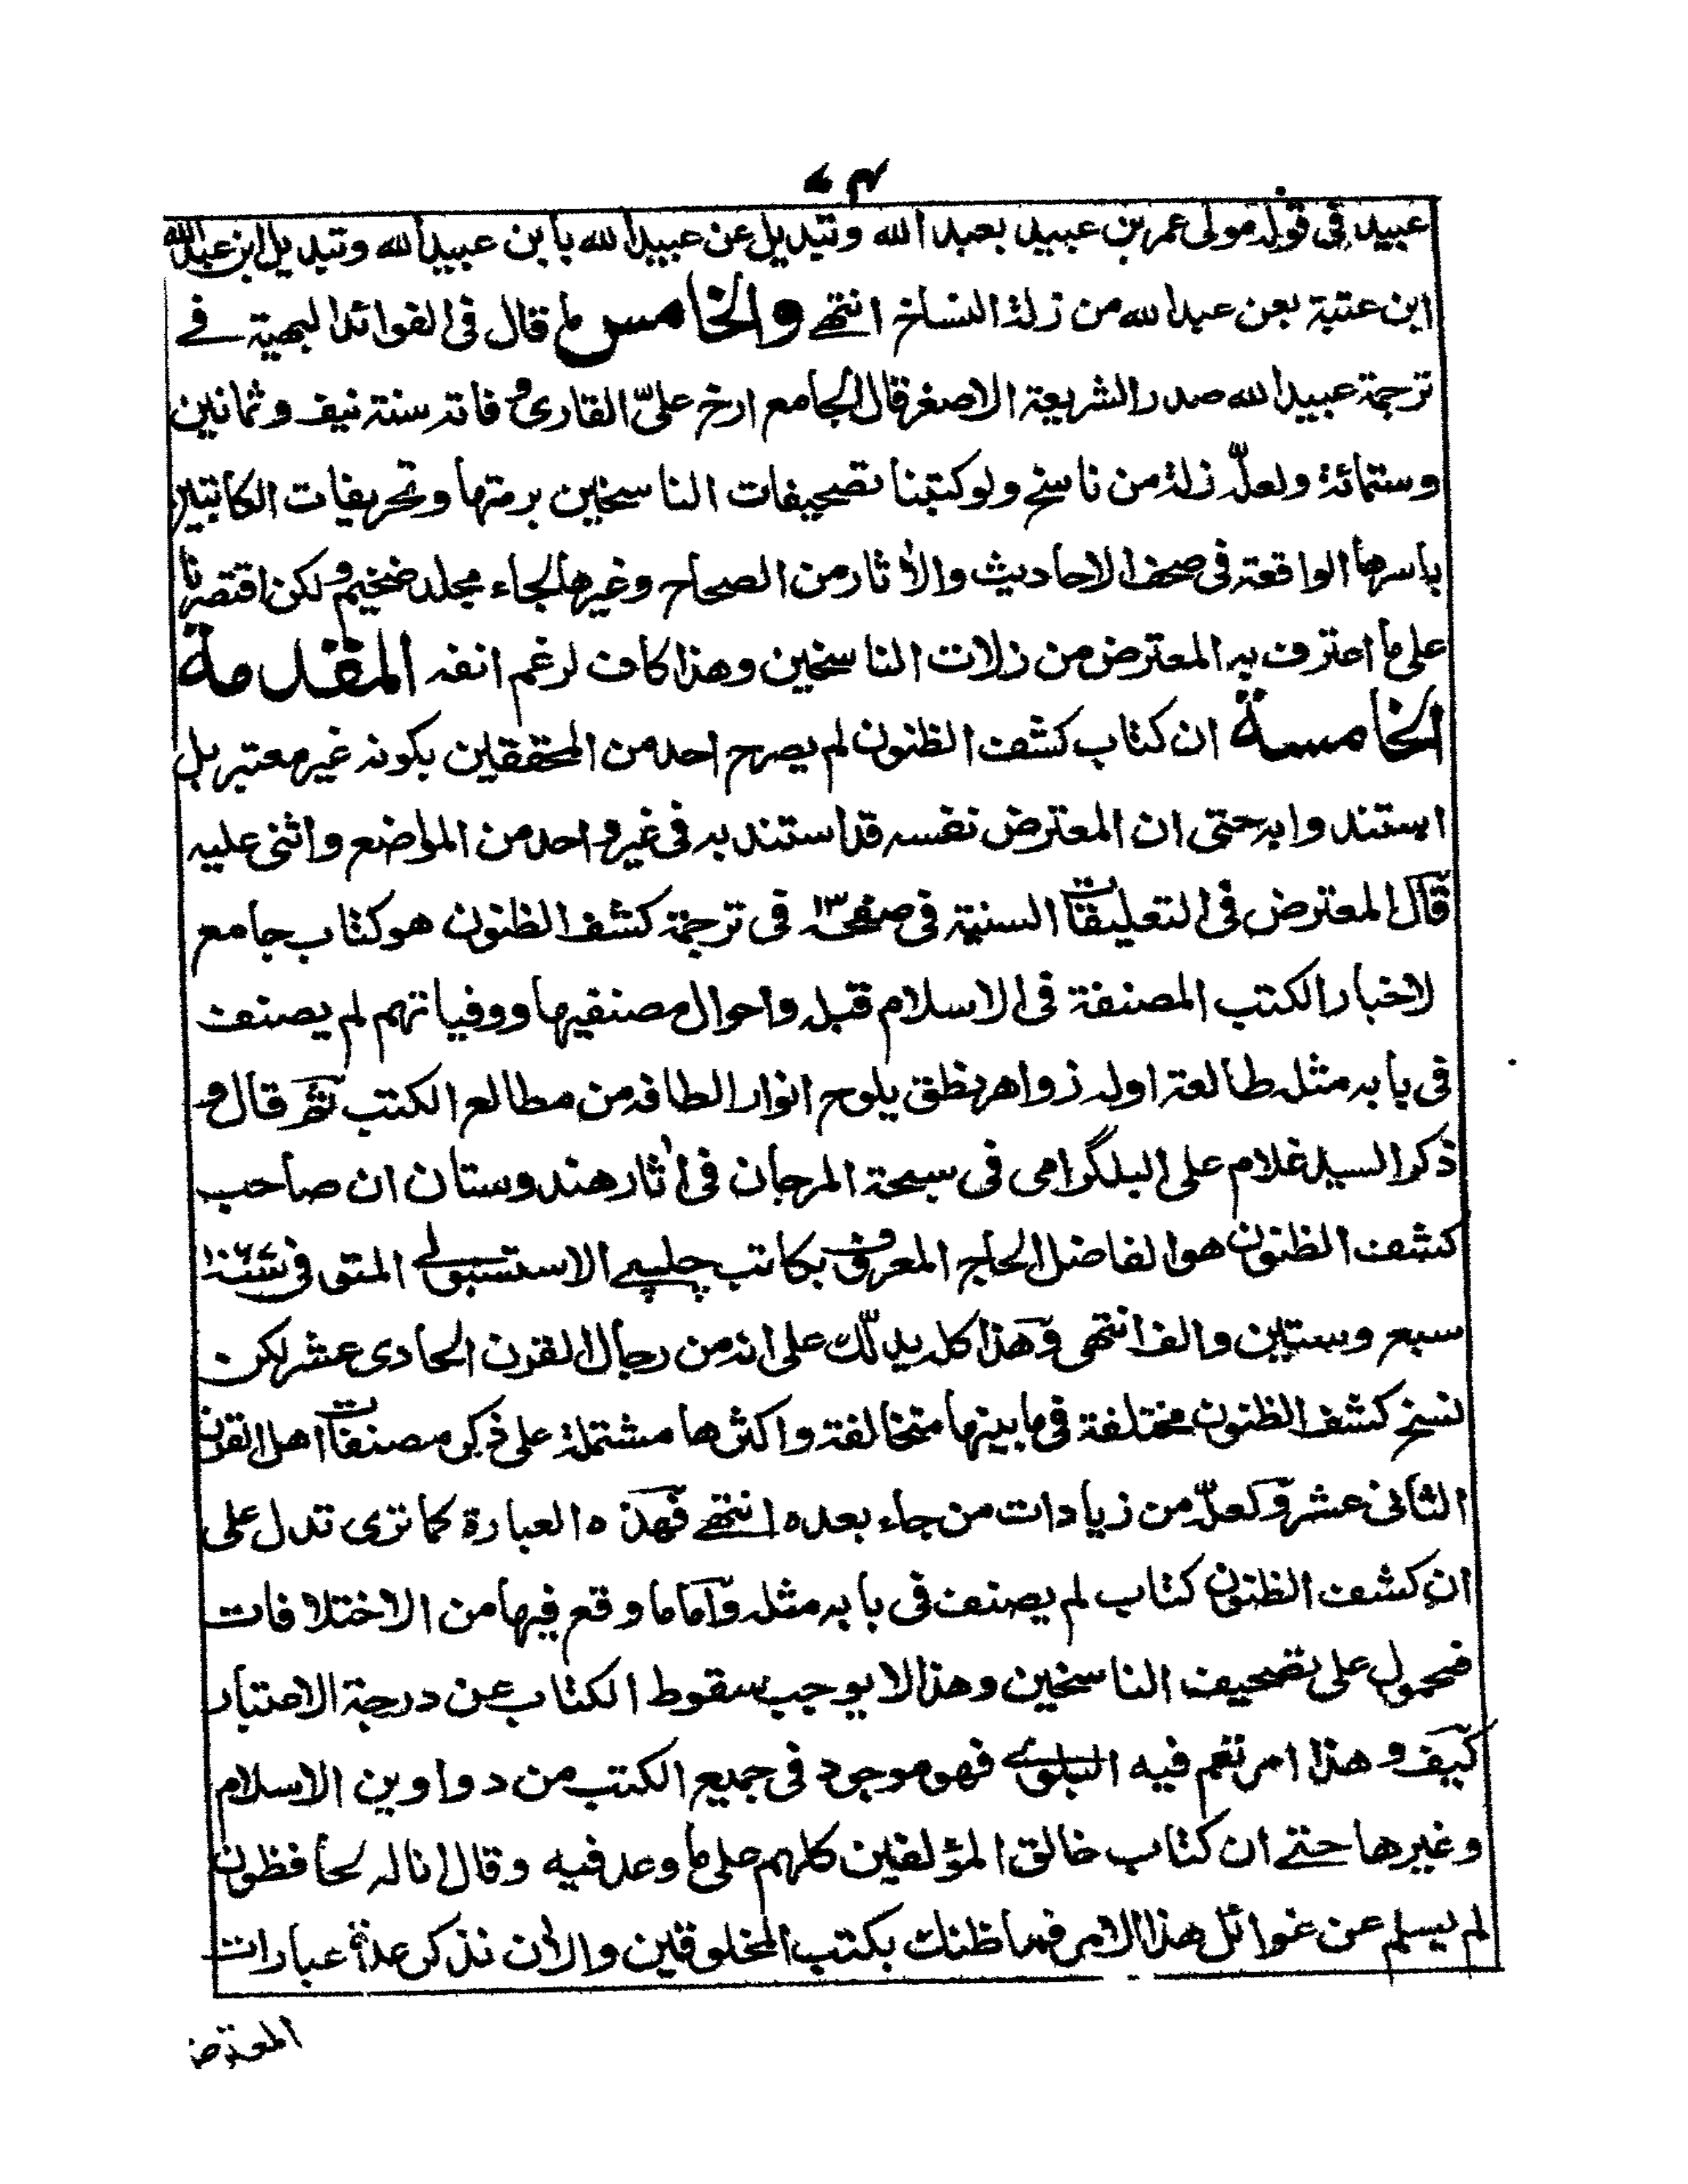 عبيد في قوله مولى عمر بن عبيد بعبد الله وتبديل عن عبيد الله بابن عبيد الله وتبديل ابن عبد الله
ابن عتبة بعن عبد الله من زلة النساخ انتهے والخامس ما قال فى الفوائد البهية فے
ترجمة عبيد الله صدر الشريعة الاصغر قال الجامع ارخ علىّ القارى وفاته سنة نيف وثمانين
وستمائة ولعلّه زلة من ناسخ ولو كتبنا تصحيفات الناسخين برمتها وتحريفات الكاتبين
باسرها الواقعة فى صحف الاحاديث والاٰثار من الصحاح وغيرها لجاء مجلد ضخيم ولكن اقتصرنا
على ما اعترف به المعترض من زلات الناسخين وهذا كاف لرغم انفه المقدمة
الخامسة ان كتاب كشف الظنون لم يصرح احد من المحققين بكونه غير معتبر بل
استندوا به حتى ان المعترض نفسه قد استند به فى غير واحد من المواضع واثنى عليه
قال المعترض فى التعليقات السنية فى صفحة ١٣ فى ترجمة كشف الظنون هو كتاب جامع
لاخبار الكتب المصنفة فى الاسلام قبله واحوال مصنفيها ووفياتهم لم يصنف
فى بابه مثله طالعته اوله زواهر نطق يلوح انوار الطافه من مطالع الكتب ثم قال و
ذكر السيد غلام على البلگرامى فى سبحة المرجان فى اٰثار هندوستان ان صاحب
كشف الظنون هو الفاضل الحاج المعروف بكاتب چلپے الاستنبولے المتوفى سنة ١٠٦٧
سبع وستين والف انتهى وهذا كله يدلّك على انه من رجال القرن الحادى عشر لكن
نسخ كشف الظنون مختلفة فى ما بينها متخالفة واكثرها مشتملة على ذكر مصنفات اهل القرن
الثانى عشر ولعلّه من زيادات من جاء بعده انتهے فهذه العبارة كما ترى تدل على
ان كشف الظنون كتاب لم يصنف فى بابه مثله واما ما وقع فيها من الاختلافات
فمحمول على تصحيف الناسخين وهذا لا يوجب سقوط الكتاب عن درجة الاعتبار
كيف وهذا امر تعم فيه البلوے فهو موجود فى جميع الكتب من دواوين الاسلام
وغيرها حتے ان كتاب خالق المؤلفين كلهم على ما وعد فيه وقال انا له لحافظون
لم يسلم عن غوائل هذا الامر فما ظنك بكتب المخلوقين والاٰن نذكر عدة عبارات
المعترض